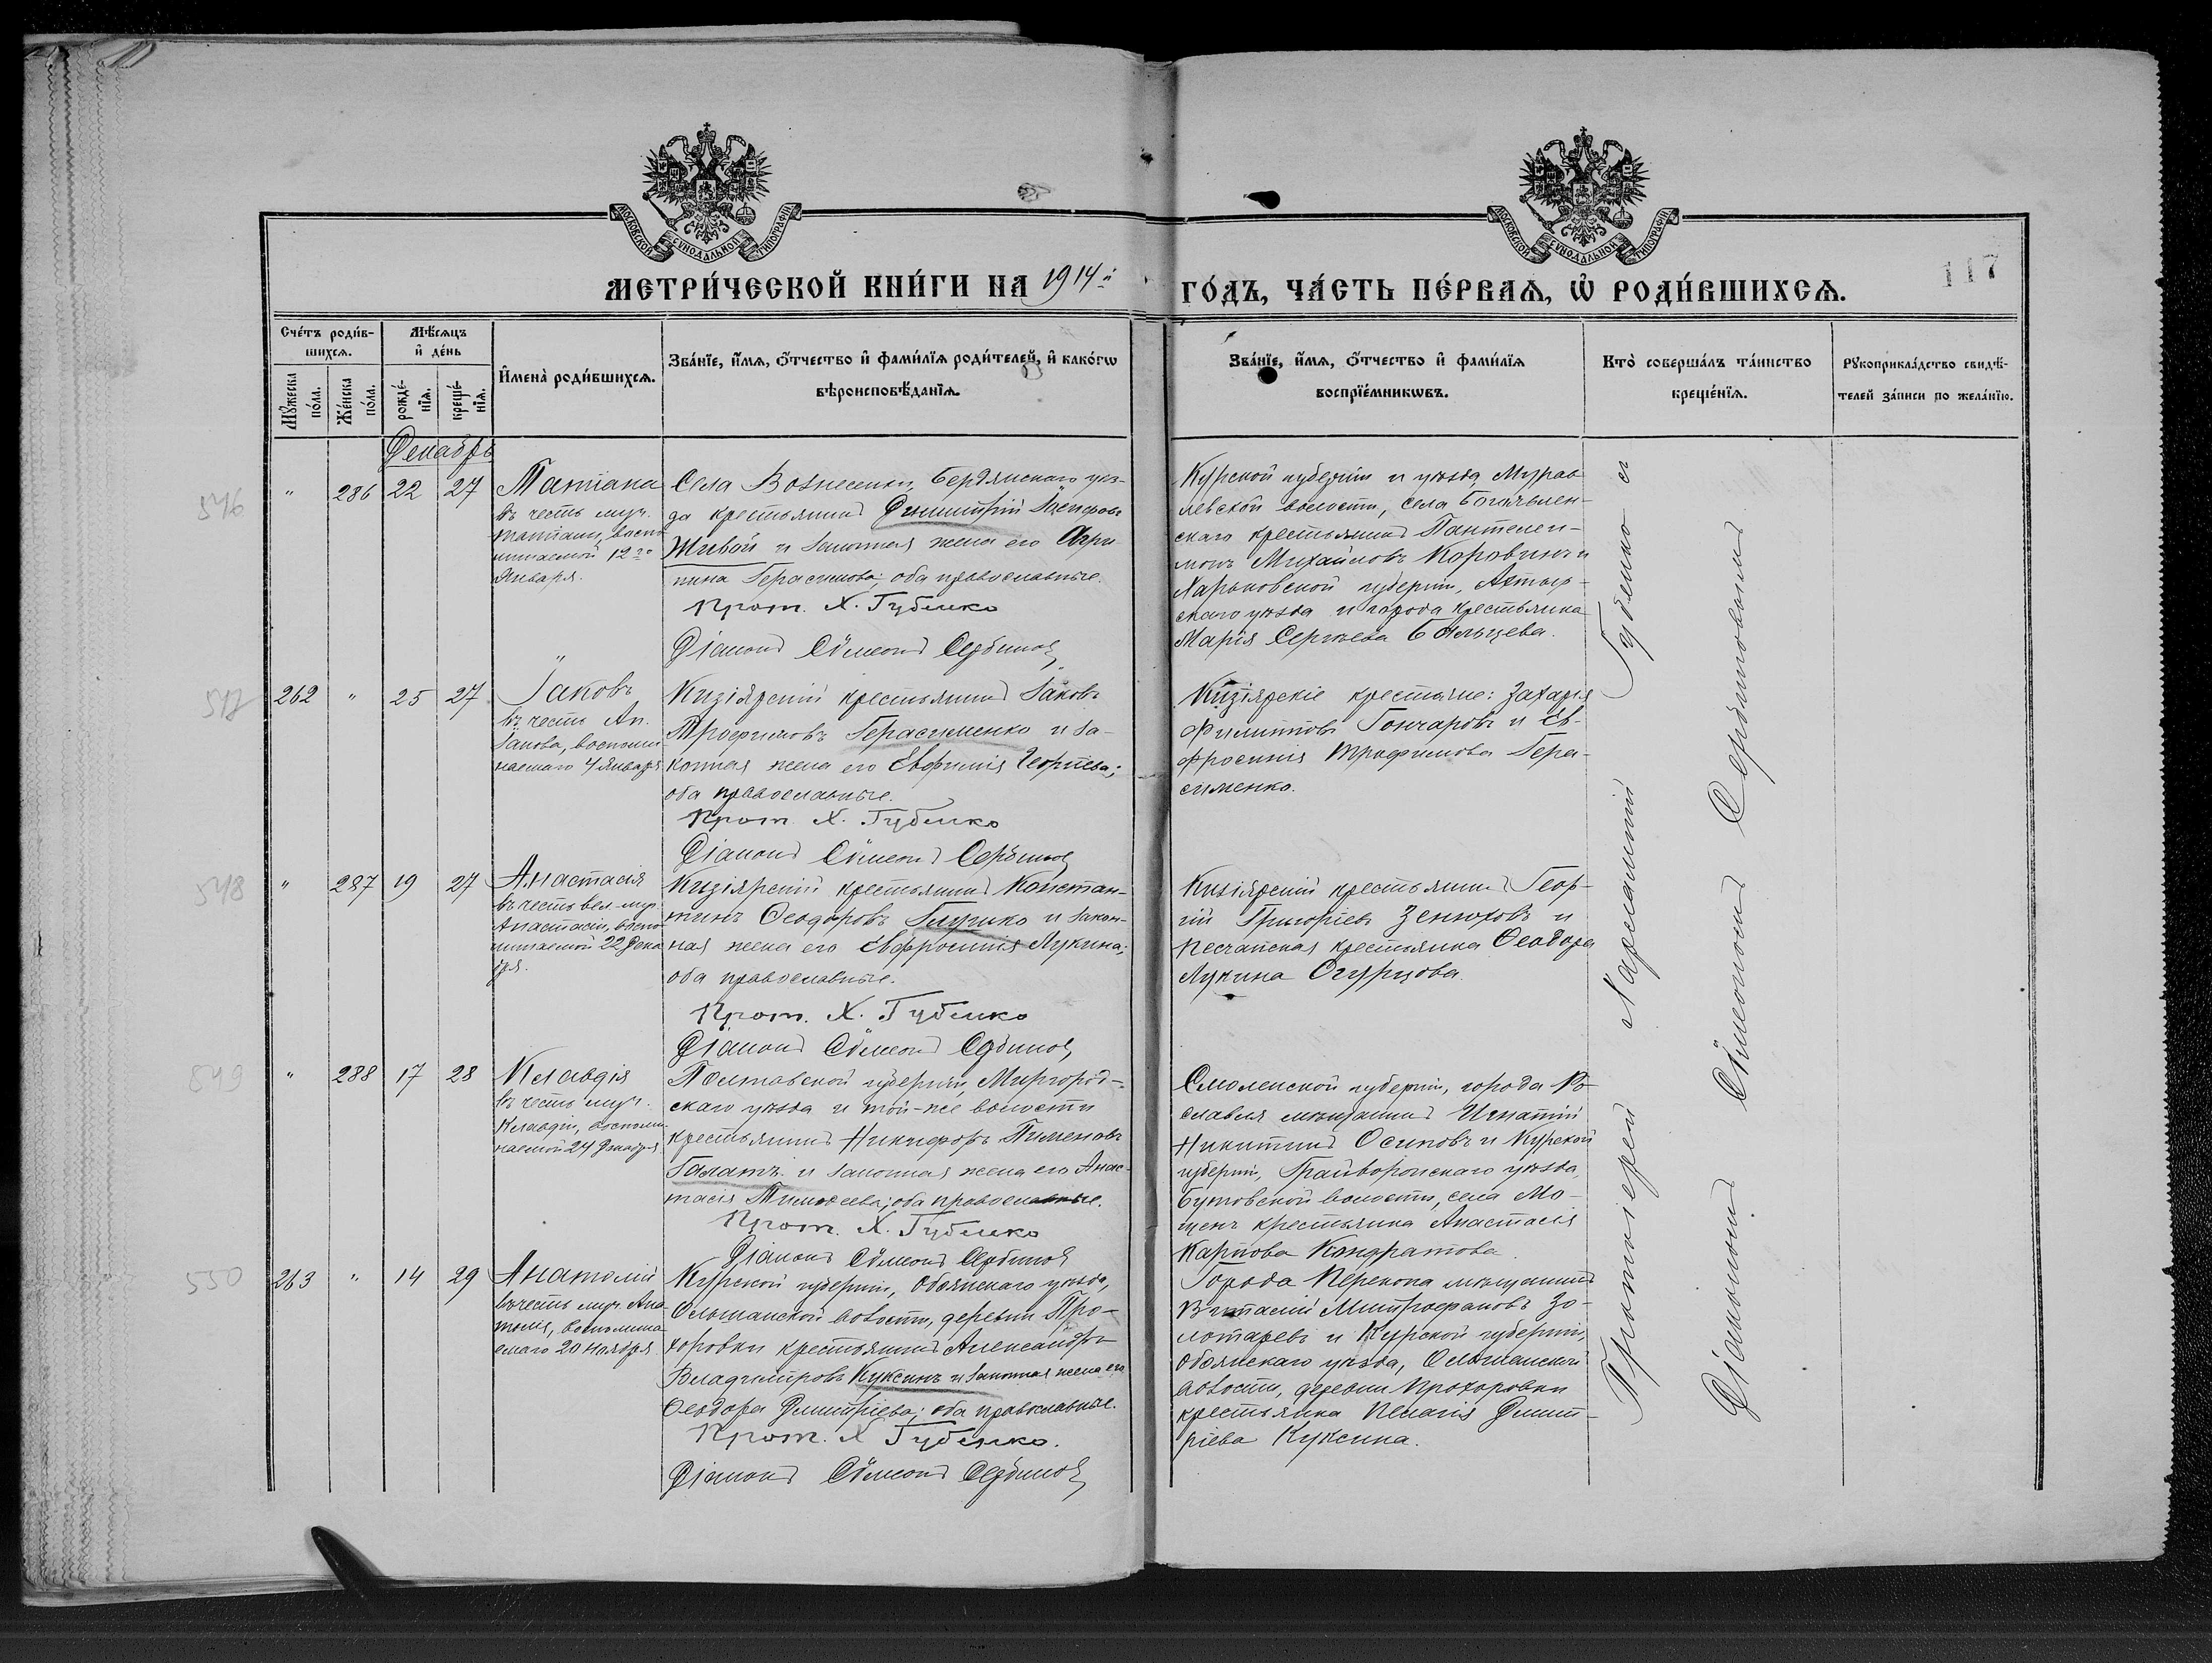 МОСКОВСКОЙ СѴНОДАЛЬНОЙ ТИПОГРАФІИ
МОСКОВСКОЙ СѴНОДАЛЬНОЙ ТИПОГРАФІИ
МЕТРИ́ЧЕСКОЙ КНИ́ГИ НА 1914й ГО́ДЪ, ЧА́СТЬ ПЕ́РВАѦ, Ѡ҆ РОДИ́ВШИХСѦ.
117
Сче́тъ роди́в-
шихсѧ.
Мѣ́сѧцъ
и҆ де́нь
Мꙋ́жеска
по́ла.
Же́нска
по́ла.
рожде́-
нїѧ.
креще́-
нїѧ.
И҆мена̀ роди́вшихсѧ.
Зва́нїе, и҆́мѧ, ѻ҆́тчество и҆ фами́лїѧ роди́телей, и҆ како́гѡ
вѣроисповѣ́данїѧ.
Зва́нїе, и҆́мѧ, ѻ҆́тчество и҆ фами́лїѧ
воспрїе́мникѡвъ.
Кто̀ соверша́лъ та́инство
креще́нїѧ.
Рꙋкоприкла́дство свидѣ́-
телей за́писи по жела́нїю.
Декабрь
546
" 286 22 27
Татіана
въ честь муч.
Татіаны, воспо
минаемой 12го
Января.
Села Вознесенки, Бердянскаго уѣз-
да крестьянинъ Димитрій Іосифовъ
Живой и законная жена его Агри
пина Герасимова; оба православные.
Прот. Х. Губенко
Діаконъ Сѵмеонъ Сербиновъ
Курской губерніи и уѣзда, Мурав
левской волости, села Богоявлен-
скаго крестьянинъ Пантелеи-
монъ Михайловъ Коровинъ и
Харьковской губерніи, Ахтыр-
скаго уѣзда и города крестьянка
Марія Сергѣева
547
262 " 25 27
Іаковъ
въ честь Ап.
Іакова, воспоми
наемаго 4 Января
Кизіярскій крестьянинъ Іаковъ
Трофимовъ Герасименко и за-
конная жена его Евфимія Георгіева;
оба православные.
Прот. Х. Губенко
Діаконъ Сѵмеонъ Сербиновъ
Кизіярскіе крестьяне: Захарія
Филипповъ Гончаровъ и Ев-
фросинія Трофимова Гера-
сименко.
548
" 287 19 27
Анастасія
въ честь вел. муч.
Анастасіи, воспо
минаемой 22 Дека
бря.
Кизіярскій крестьянинъ Констан-
тинъ Ѳеодоровъ и закон-
ная жена его Евфросинія Лукина;
оба православные.
Прот. Х. Губенко
Діаконъ Сѵмеонъ Сербиновъ
Кизіярскій крестьянинъ Геор-
гій Григоріевъ Зенюховъ и
Песчанская крестьянка Ѳеодора
Лукина Огурцова.
549
" 288 17 28
Клавдія
въ честь муч.
Клавдіи, воспоми
наемой 24 Декабря
Полтавской губерніи, Миргород-
скаго уѣзда и той-же волости
крестьянинъ Никифоръ Пименовъ
Галатъ и законная жена его Анас-
тасія Тимоѳеева; оба православные.
Прот. Х. Губенко
Діаконъ Сѵмеонъ Сербиновъ
Смоленской губерніи, города Ро
славля мѣщанинъ Игнатій
Никитинъ Осиповъ и Курской
губерніи, Грайворонскаго уѣзда,
Бутовской волости, села Мо-
щенъ крестьянка Анастасія
Карпова Кондратова.
550
263 " 14 29
Анатолій
въ честь муч. Ана
толія, воспомина
емаго 20 Ноября
Курской губерніи, Обоянскаго уѣзда,
Ольшанской волости, деревни Про-
хоровки крестьянинъ Александръ
Владиміровъ Куксинъ и законная жена его
Ѳеодора Димитріева; оба православные.
Прот. Х Губенко.
Діаконъ Сѵмеонъ Сербиновъ
Города Перекопа мѣщанинъ
Митрофановъ Зо-
лотаревъ и Курской губерніи,
Обоянскаго уѣзда, Ольшанской
волости, деревни Прохоровки
крестьянка Пелагія Димит-
ріева Куксина.
Протоіерей Харлампій Губенко съ
Діакономъ Сѵмеономъ Сербиновымъ